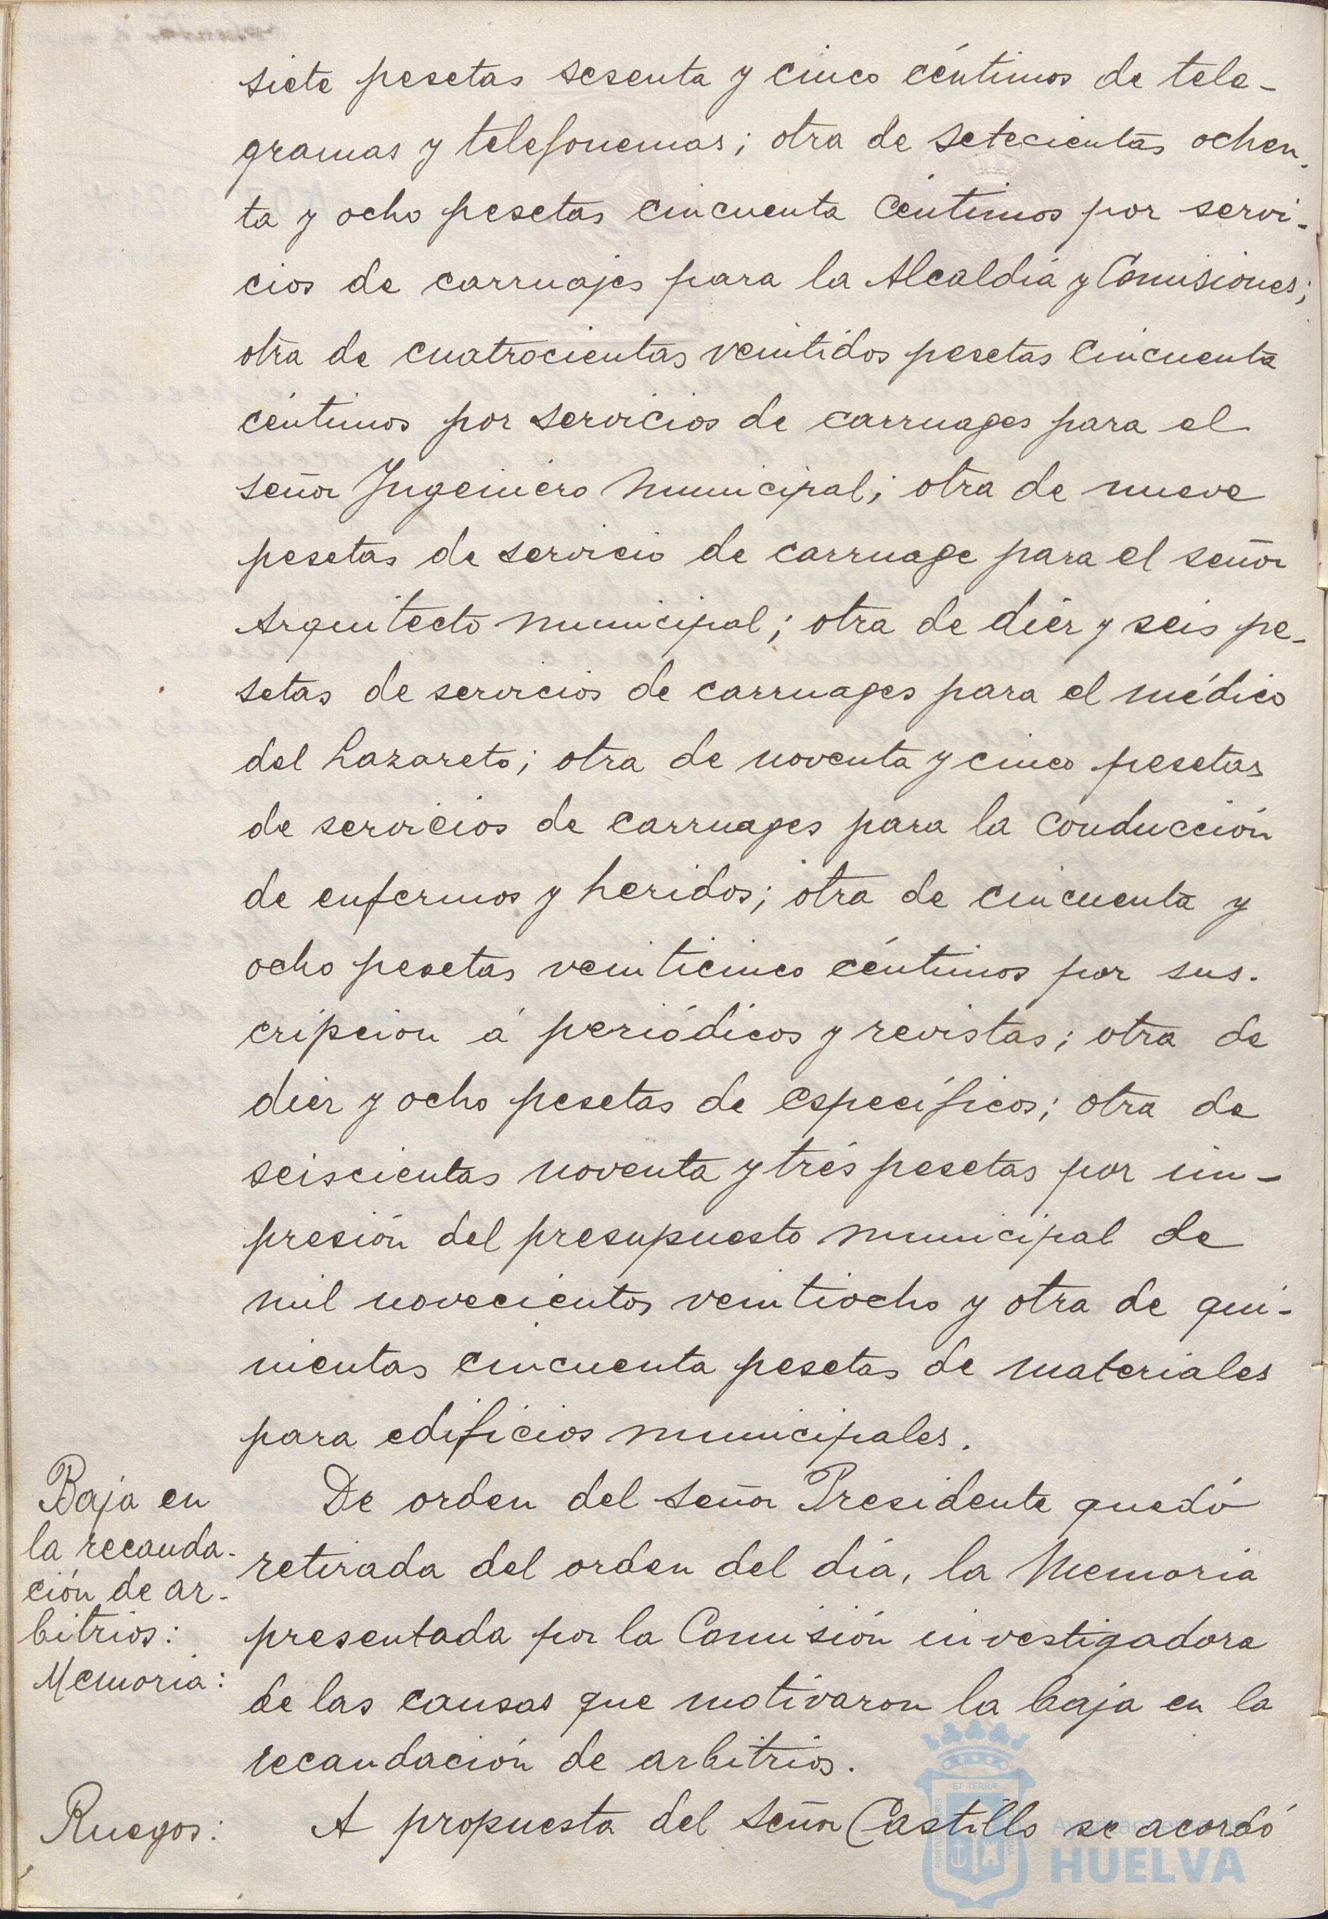 siete pesetas sesenta y cinco céntimos de tele-
gramas y telefonemas; otra de setecientas ochen-
ta y ocho pesetas cincuenta céntimos por servi-
cios de carruajes para la Alcaldía y Comisiones;
otra de cuatrocientas veintidos pesetas cincuenta
céntimos por servicios de carruages para el
señor Ingeniero Municipal; otra de nueve
pesetas de servicio de carruage para el señor
Arquitecto municipal; otra de diéz y seis pe-
setas de servicios de carruages para el médico
del Lazareto; otra de noventa y cinco pesetas
de servicios de carruages para la conducción
de enfermos y heridos; otra de cincuenta y
ocho pesetas veinticinco céntimos por sus-
cripcion á periódicos y revistas; otra de
diéz y ocho pesetas de específicos; otra de
seiscientas noventa y trés pesetas por im-
presión del presupuesto municipal de
mil novecientos veintiocho y otra de qui-
nientas cincuenta pesetas de materiales
para edificios municipales.
Baja en
la recauda-
ción de ar-
bitrios:
Memoria:
De orden del señor Presidente quedó
retirada del orden del día, la Memoria
presentada por la Comisión investigadora
de las causas que motivaron la baja en la
recaudación de arbitrios.
Ruegos:
A propuesta del señor Castillo se acordó
HUELVA